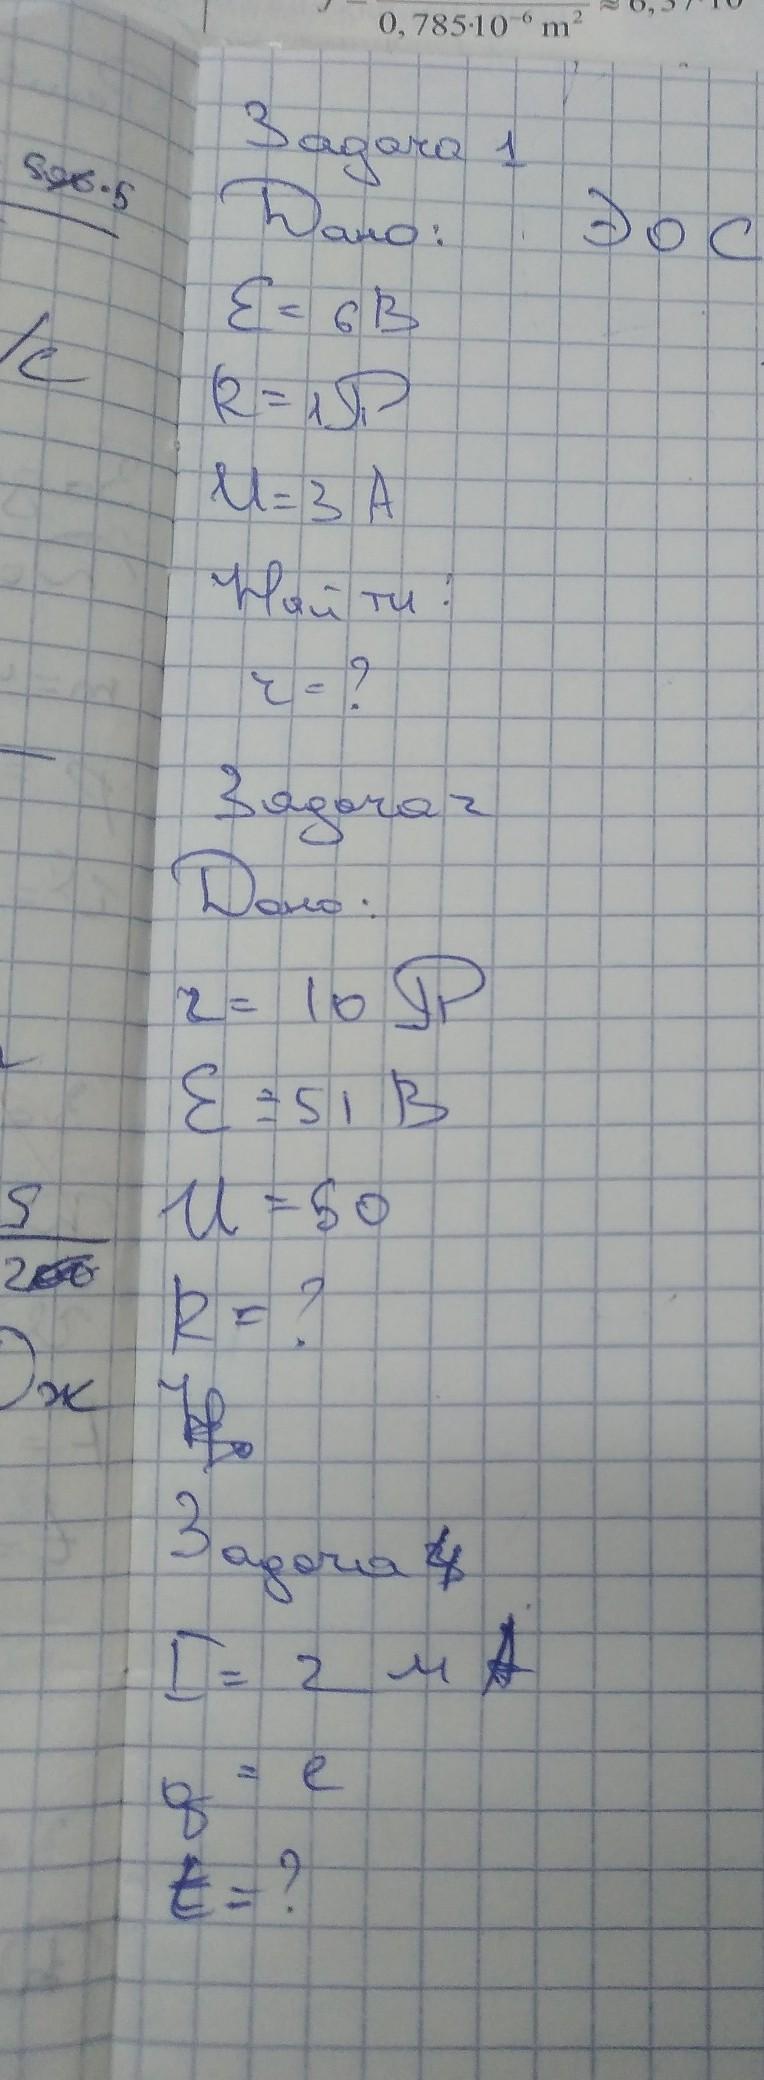 0,785·10⁻⁶ m²
Задача 1
Дано: ЭДС
Ɛ = 6 В
R = 1
U = 3 А
Найти:
r = ?
Задача 2
Дано:
r = 10
Ɛ = 51 В
U = 50
R = ?
Задача 4
I = 2 мА
q = e
t = ?
/с
5
Дж